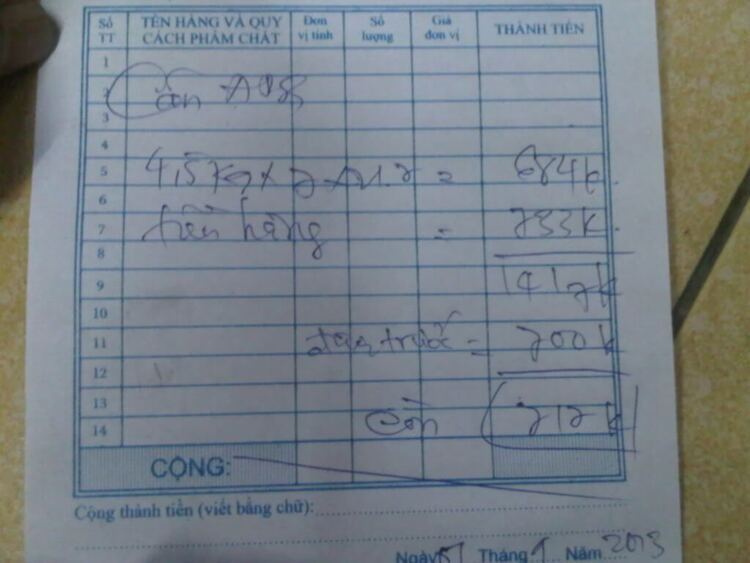 Số TT TÊN HÀNG VÀ QUY CÁCH PHẨM CHẤT Đơn vị tính Số lượng Giá đơn vị THÀNH TIỀN
1
2
3
4
5 4,5 Kg x = 684k
6
7 tiền hàng = 733k
8
9 1417k
10
11 đưa trước = 700k
12
13
14 còn 717k
CỘNG:
Cộng thành tiền (viết bằng chữ):
Ngày Tháng 1 Năm 2013